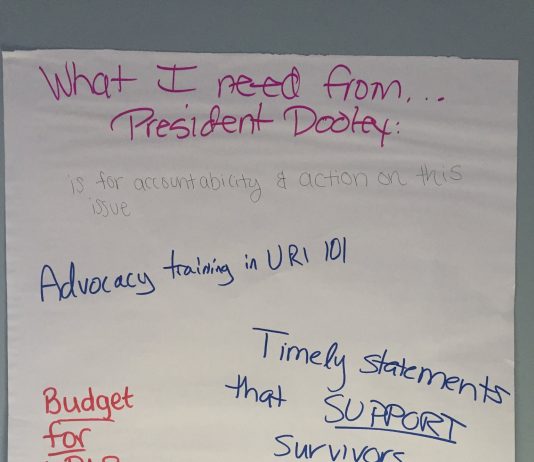 What I need from...
President Dooley:
is for accountability & action on this
issue
Advocacy training in URI 101
Timely statements
that SUPPORT
survivors
Budget
for